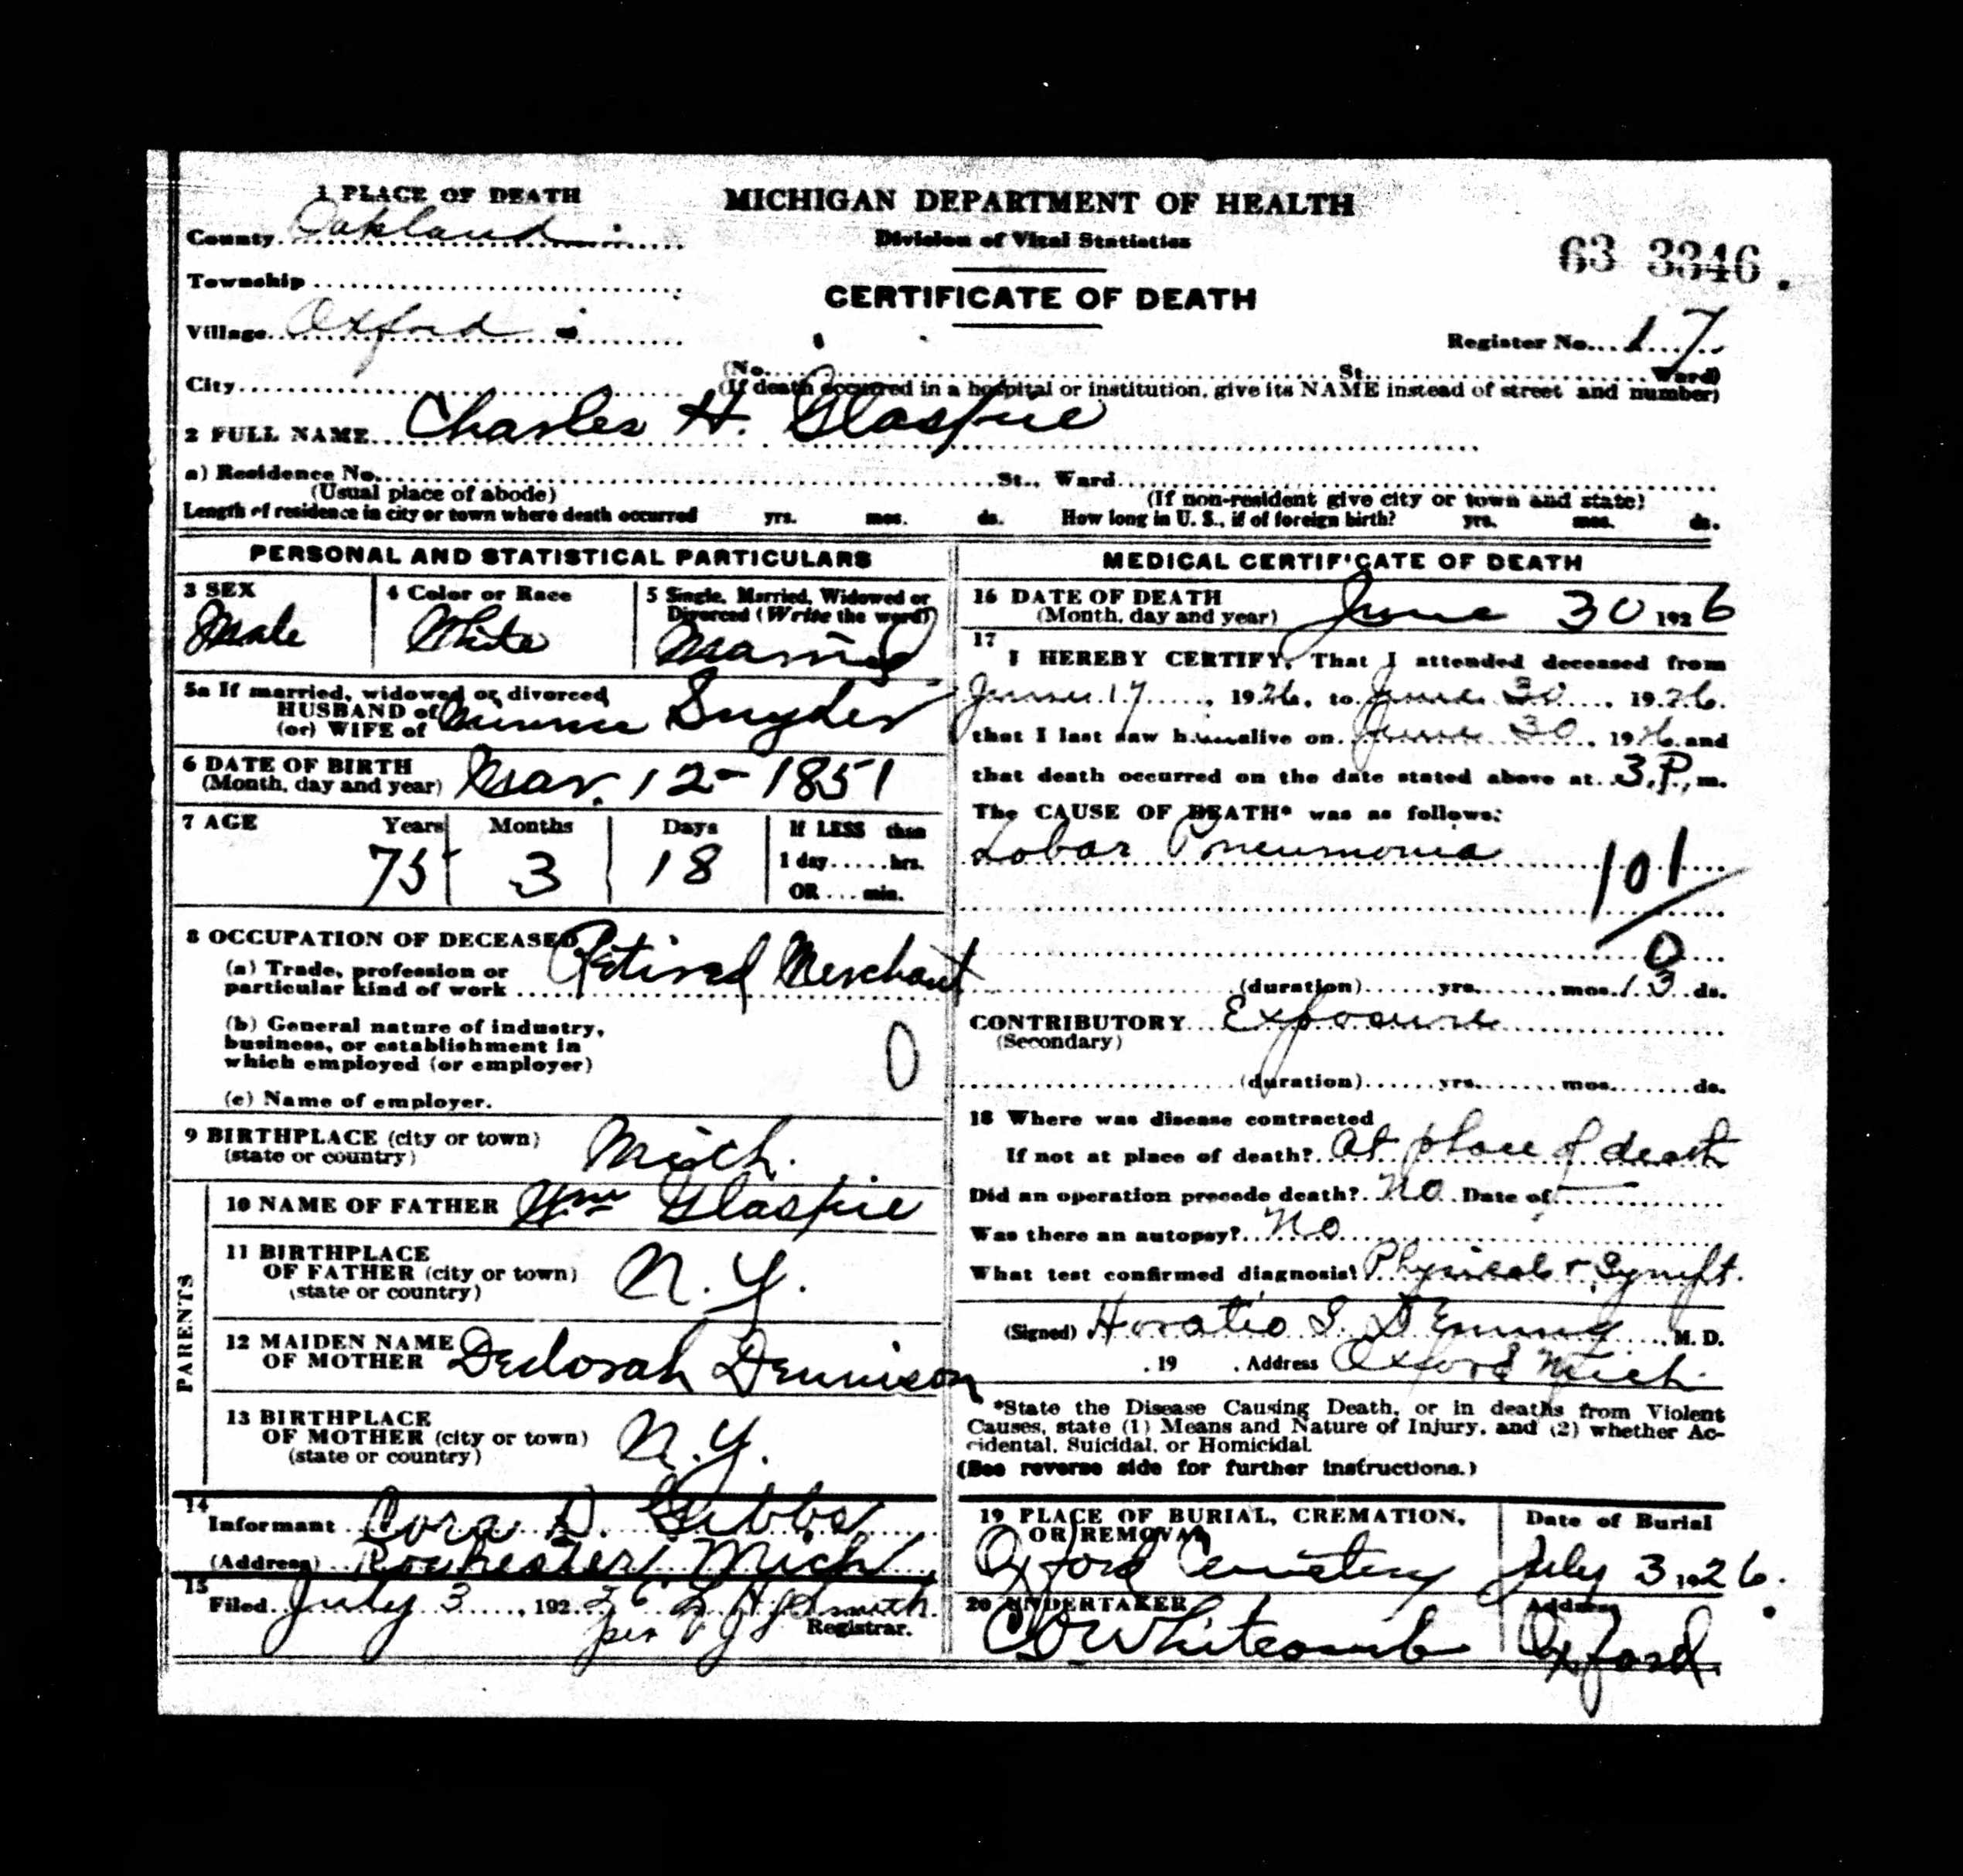 1 PLACE OF DEATH
MICHIGAN DEPARTMENT OF HEALTH
County Oakland
Division of Vital Statistics
63 3346
Township
CERTIFICATE OF DEATH
Village Oxford
Register No. 17
City
(No. St. Ward)
(If death occurred in a hospital or institution, give its NAME instead of street and number)
2 FULL NAME Charles H. Glaspie
a) Residence No. St., Ward
(Usual place of abode)
(If non-resident give city or town and state)
Length of residence in city or town where death occurred yrs. mos. ds. How long in U. S., if of foreign birth? yrs. mos. ds.
PERSONAL AND STATISTICAL PARTICULARS
3 SEX
Male
4 Color or Race
White
5 Single, Married, Widowed or
Divorced (Write the word)
Married
5a If married, widowed or divorced
HUSBAND of
(or) WIFE of
Minnie Snyder
6 DATE OF BIRTH
(Month, day and year) Mar. 12-1851
7 AGE Years Months Days If LESS than
1 day......hrs.
OR....min.
75 3 18
8 OCCUPATION OF DECEASED
(a) Trade, profession or
particular kind of work
Retired Merchant
(b) General nature of industry,
business, or establishment in
which employed (or employer)
0
(c) Name of employer.
9 BIRTHPLACE (city or town)
(state or country)
Mich.
PARENTS
10 NAME OF FATHER Wm Glaspie
11 BIRTHPLACE
OF FATHER (city or town)
(state or country)
N.Y.
12 MAIDEN NAME
OF MOTHER
Deborah Dennison
13 BIRTHPLACE
OF MOTHER (city or town)
(state or country)
N.Y.
14
Informant Cora D. Gibbs
(Address) Rochester Mich
15
Filed July 3, 1926
Smith
Registrar.
per
MEDICAL CERTIFICATE OF DEATH
16 DATE OF DEATH
(Month, day and year) June 30 1926
17
I HEREBY CERTIFY, That I attended deceased from
June 17, 1926, to June 30, 1926.
that I last saw him alive on June 30, 1926 and
that death occurred on the date stated above at 3.P.m.
The CAUSE OF DEATH* was as follows:
Lobar Pneumonia
101
0
(duration) yrs. mos. 13 ds.
CONTRIBUTORY Exposure
(Secondary)
(duration) yrs. mos. ds.
18 Where was disease contracted
If not at place of death? At place of death
Did an operation precede death? No Date of
Was there an autopsy? No
What test confirmed diagnosis? Physical + Sympt.
(Signed) Horatio S. Deming, M. D.
, 19 , Address Oxford Mich.
*State the Disease Causing Death, or in deaths from Violent
Causes, state (1) Means and Nature of Injury, and (2) whether Ac-
cidental, Suicidal, or Homicidal.
(See reverse side for further instructions.)
19 PLACE OF BURIAL, CREMATION,
OR REMOVAL
Oxford Cemetery
Date of Burial
July 3, 1926.
20 UNDERTAKER
C O Whitcomb
Address
Oxford